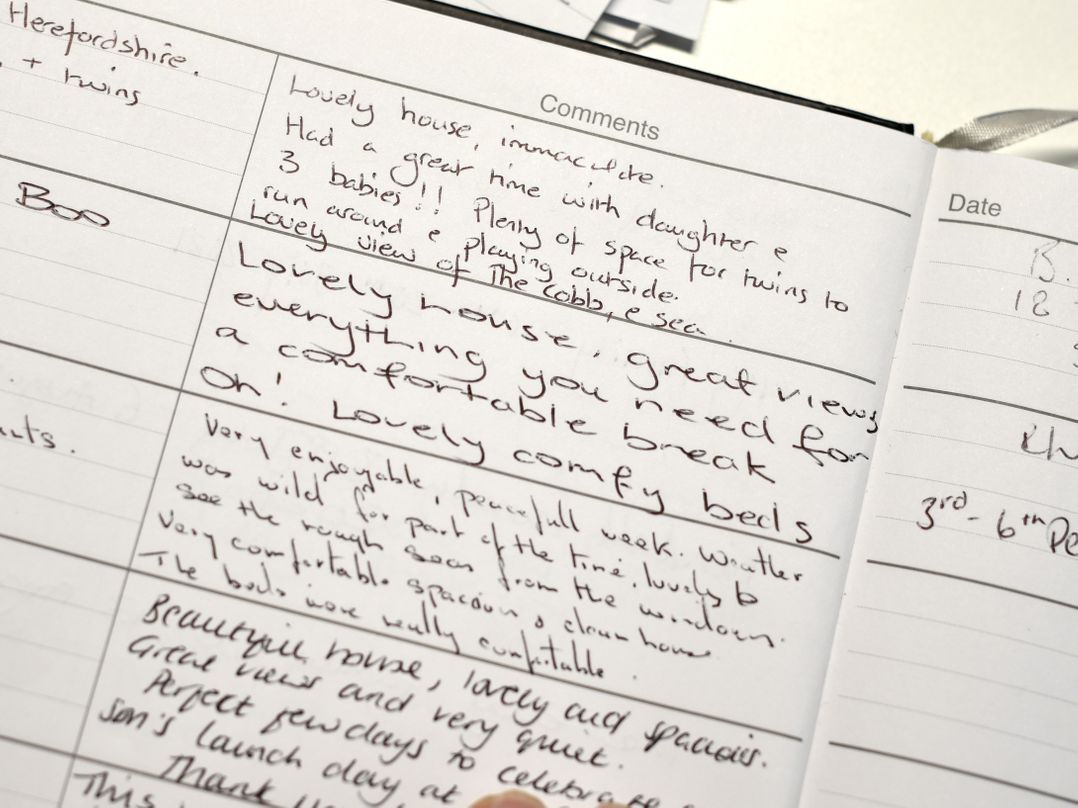 Herefordshire.
+ twins
Boo
Comments
Lovely house, immaculate.
Had a great time with daughter e
3 babies!! Plenty of space for twins to
run around e playing outside.
Lovely view of The Cobb, e sea.
Lovely house, great views
everything you need for
a comfortable break
Oh! Lovely comfy beds
Very enjoyable, peacefull week. Weather
was wild for part of the time, lovely to
see the rough seas from the windows.
Very comfortable spacious & clean house
The beds were really comfortable.
Beautiful house, lovely and spacious.
Great views and very quiet.
Perfect few days to celebrate
son's launch day at
Thank
This
Date
18
3rd - 6th